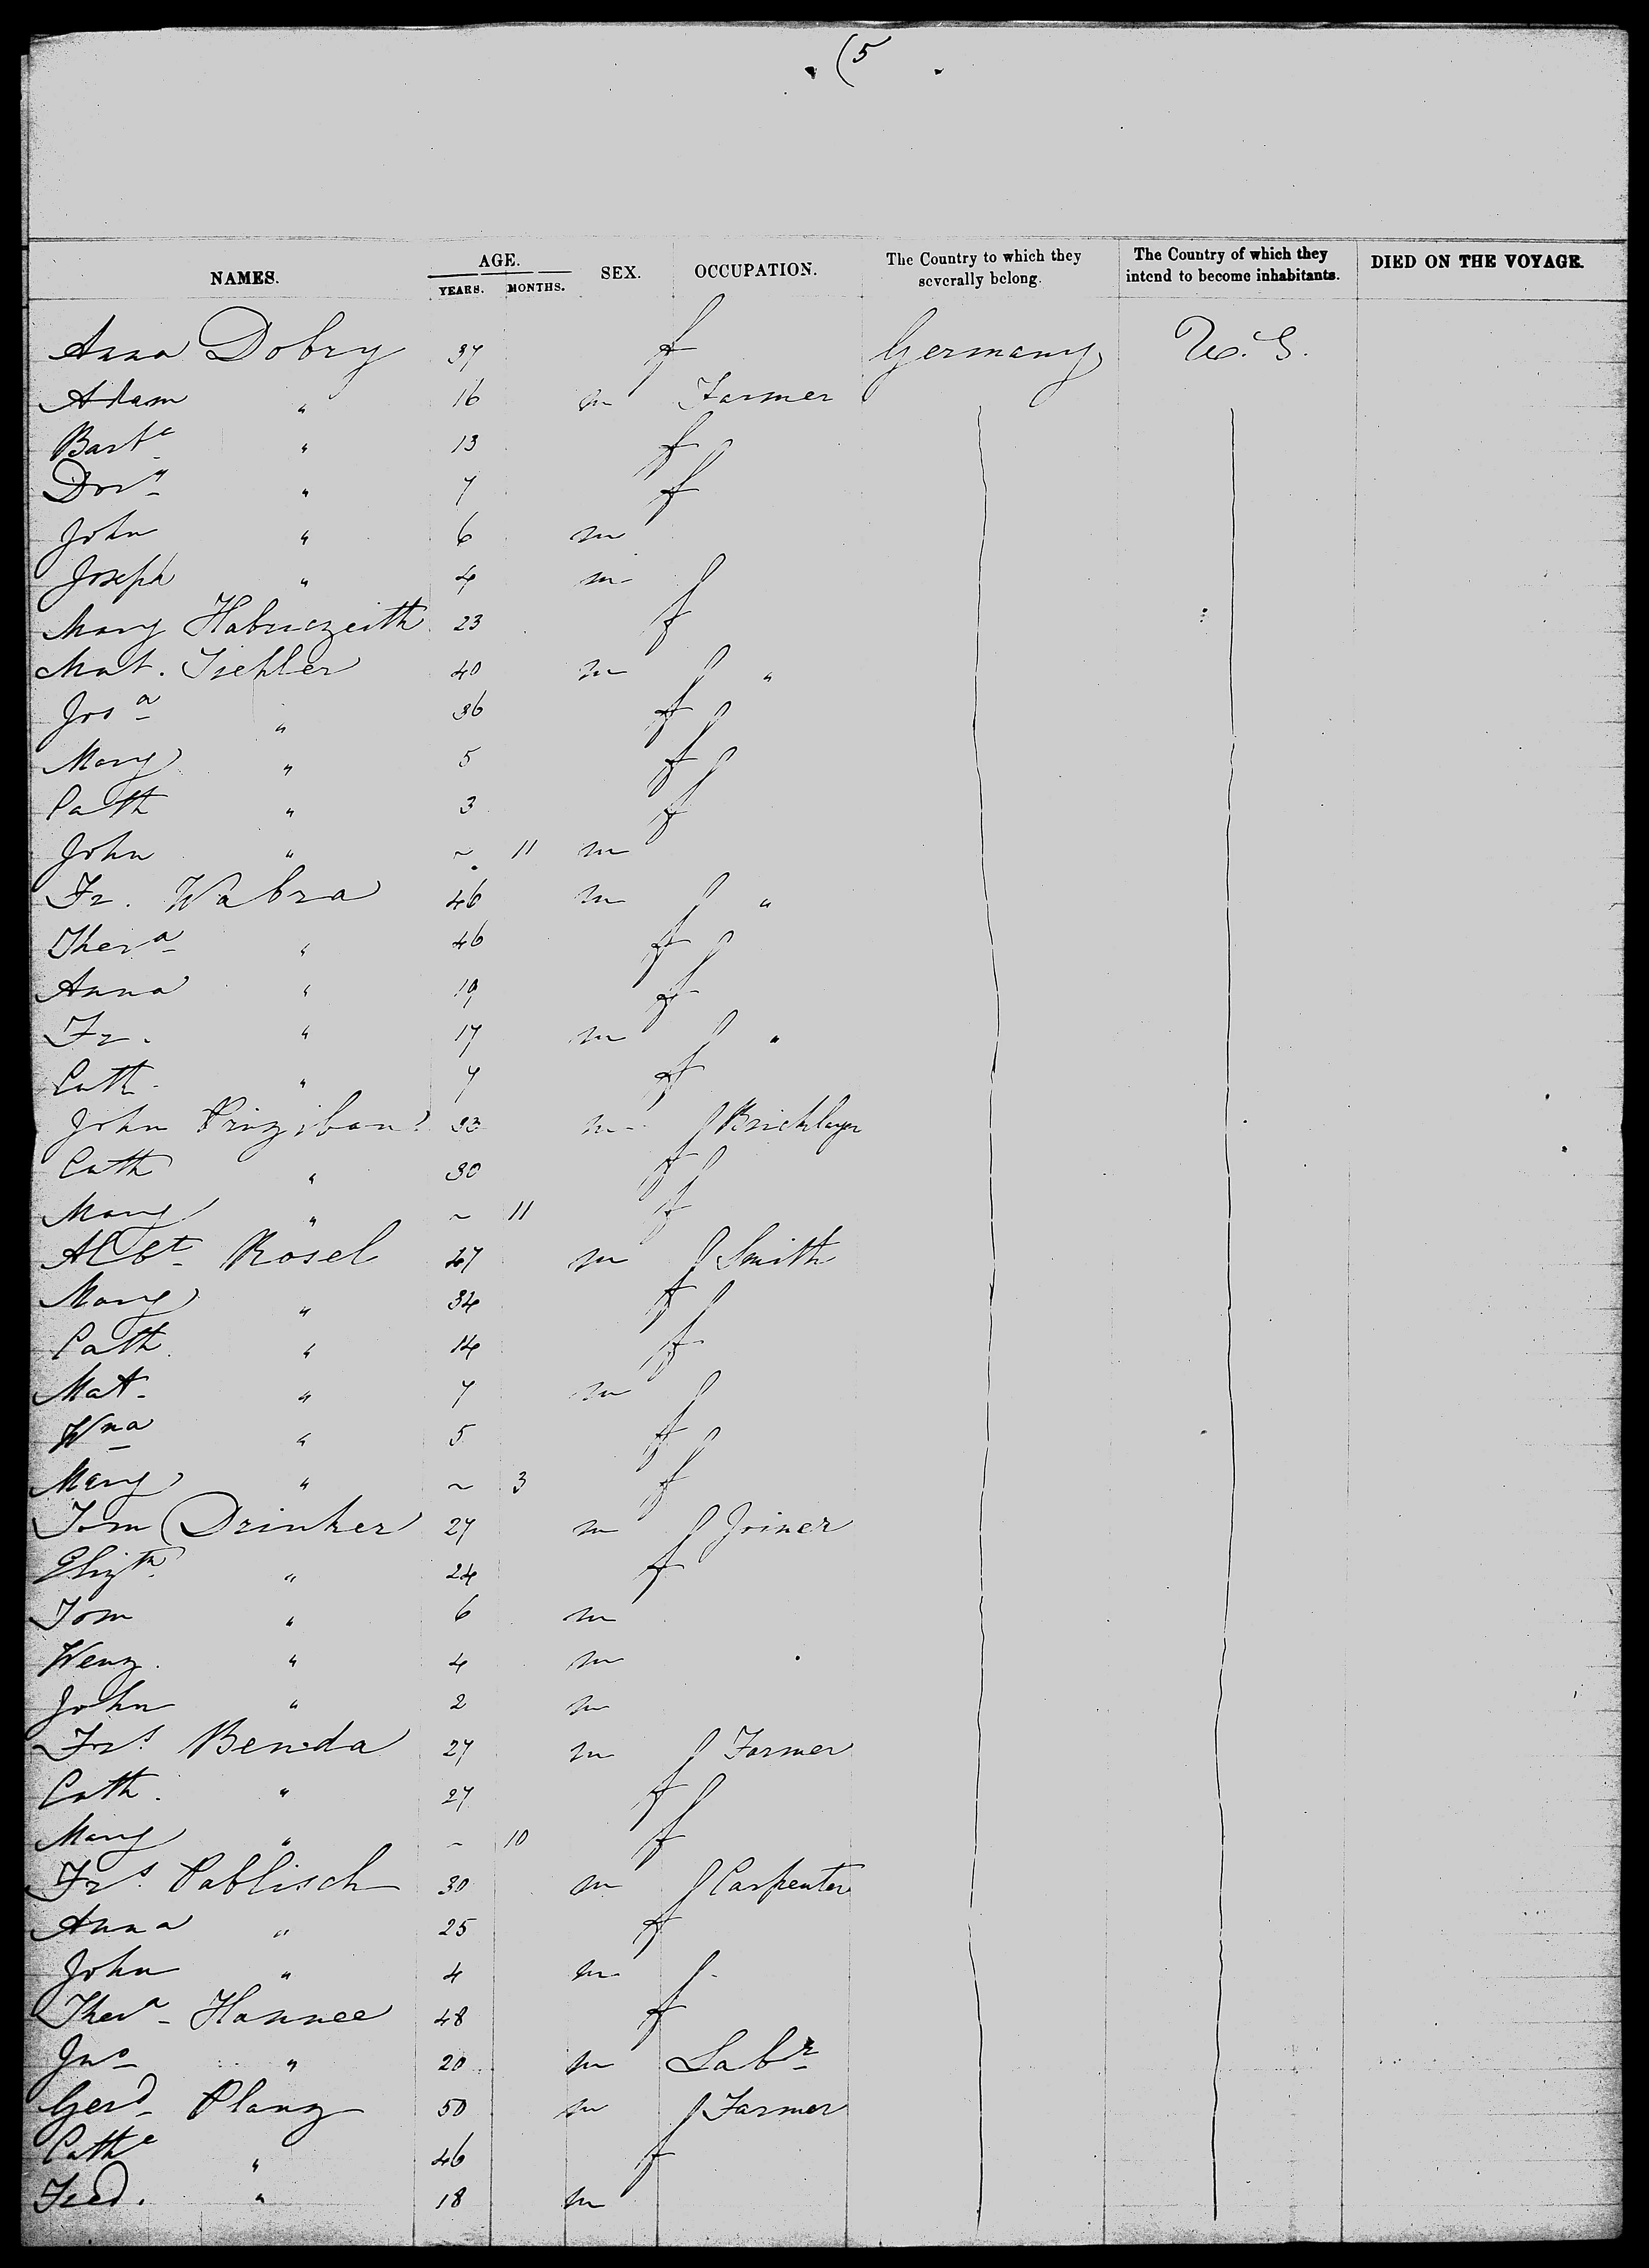 (5
NAMES. AGE. YEARS. MONTHS. SEX. OCCUPATION. The Country to which they severally belong. The Country of which they intend to become inhabitants. DIED ON THE VOYAGE.
Anna Dobry 37 f Germany U. S.
Adam " 16 m Farmer
Barba " 13 f
Dora " 7 f
John " 6 m
Joseph " 4 m
Mary 23 f
Mat. 40 m "
Josa " 36 f
Mary " 5 f
Cath " 3 f
John " ~ 11 m
Fr. Wabra 46 m "
Thera " 46 f
Anna " 19 f
Fr. " 17 m "
Cath. " 7 f
John 33 m Bricklayer
Cath " 30 f
Mary " ~ 11 f
Albt Rosel 47 m Smith
Mary " 34 f
Cath. " 14 f
Mat. " 7 m
Wna " 5 f
Mary " ~ 3 f
Tom Drinker 27 m Joiner
Elizth " 24 f
Tom " 6 m
Wenz. " 4 m
John " 2 m
Frs. Benda 27 m Farmer
Cath. " 27 f
Mary " ~ 10 f
Frs. Pablisch 30 m Carpenter
Anna " 25 f
John " 4 m
Thera Hannee 48 f
Jno " 20 m Labr
Gerd Planz 50 m Farmer
Cathe " 46 f
Fred. " 18 m